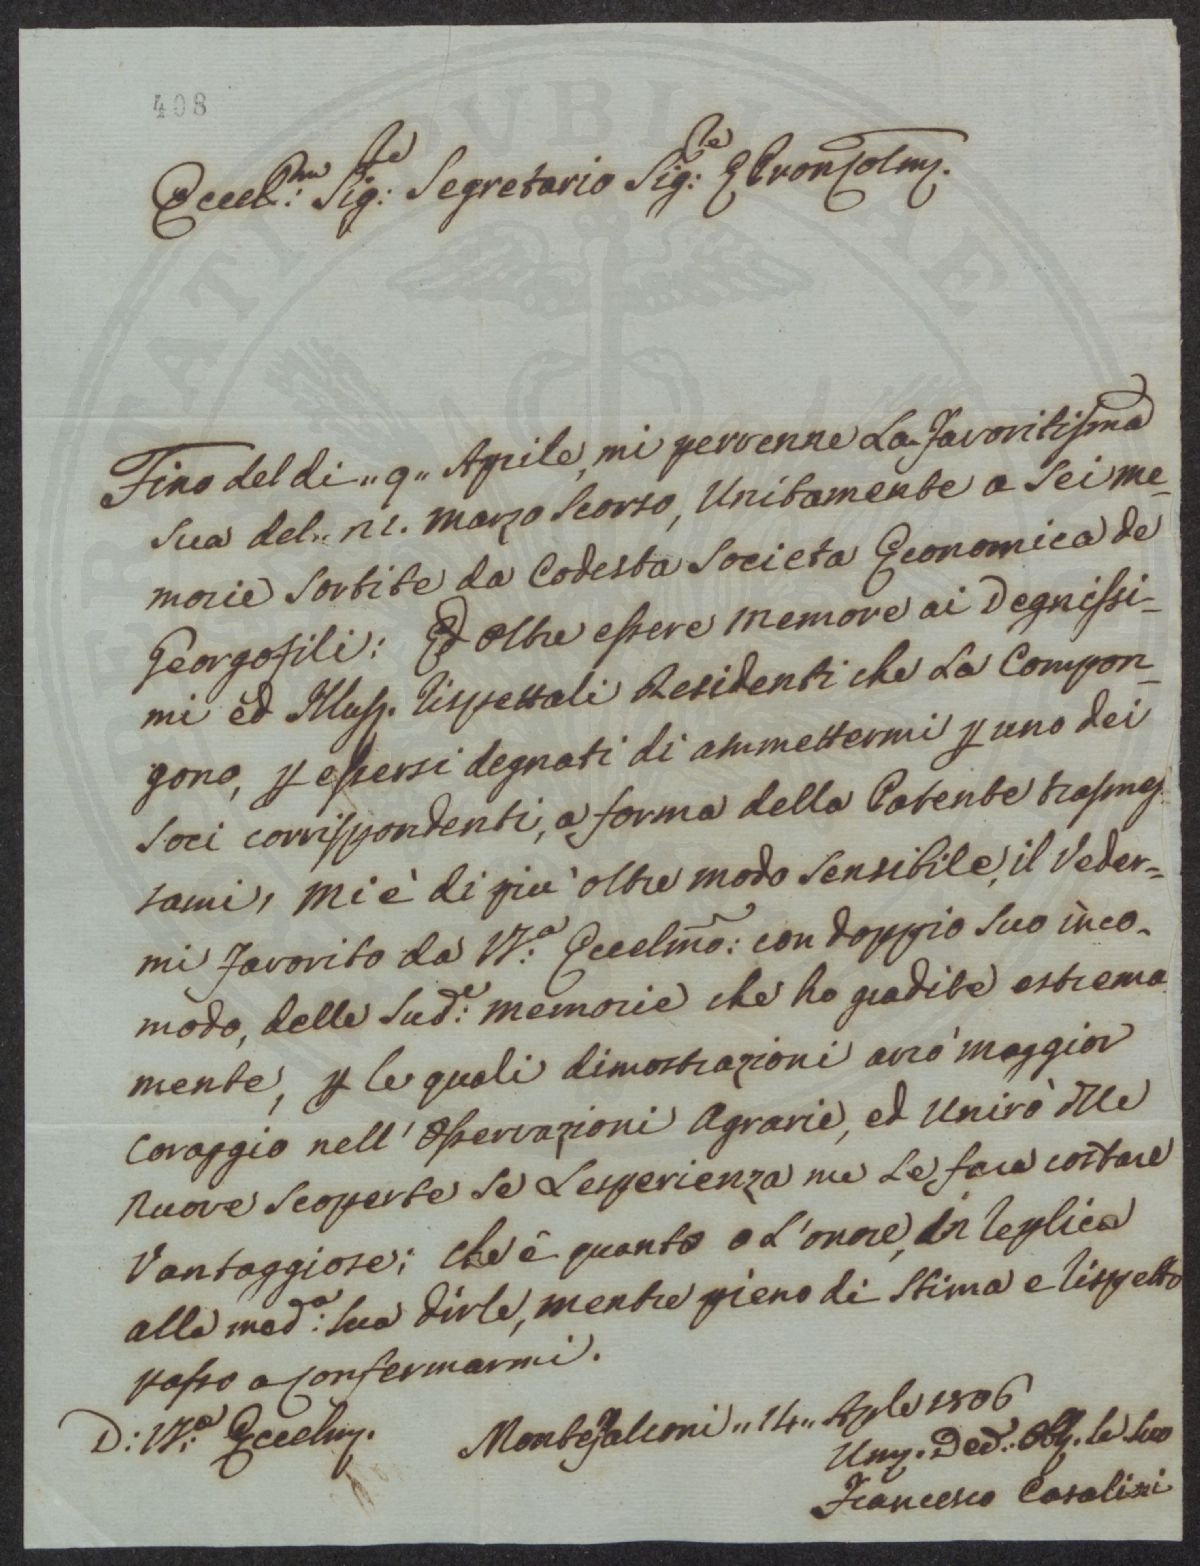 408
Eccel:mo Sig:re Segretario Sig:re
Fino del di „ 9 „ Aprile, mi pervenne La Favoritissma
Sua del „ 21. Marzo Scorso, Unitamente a Sei me=
morie Sortite da Codesta Societa Economica de
Georgofili: Ed Oltre essere memore ai Degnissi=
mi ed Illuss. Rispettali Residenti che La Compon=
gono, p essersi degnati di ammettermi p uno dei
Soci corrisspondenti, a forma della Patente trasmes=
sami, Mi è di più oltre modo Sensibile, il Veder=
mi Favorito da V:a Eccelmo: con doppio Suo inco=
modo, delle Sud:e Memorie che ho gradite estrema
mente, p le quali dimostrazioni avrò maggior
Coraggio nell' Osservazioni Agrarie, ed Unirò Alle
Nuove Scoperte Se L'esperienza me Le fara costare
Vantaggiose; che è quanto o L'onore, in Replica
alla med:a Sua dirle, mentre pieno di Stima e Rispetto
passo a Confermarmi.
D: V:a Eccelmz. Montefalconi „ 14 „ Aple 1806
Umz. Ded: Obb. Se Suo
Francesco Casalini
PUBLICAE